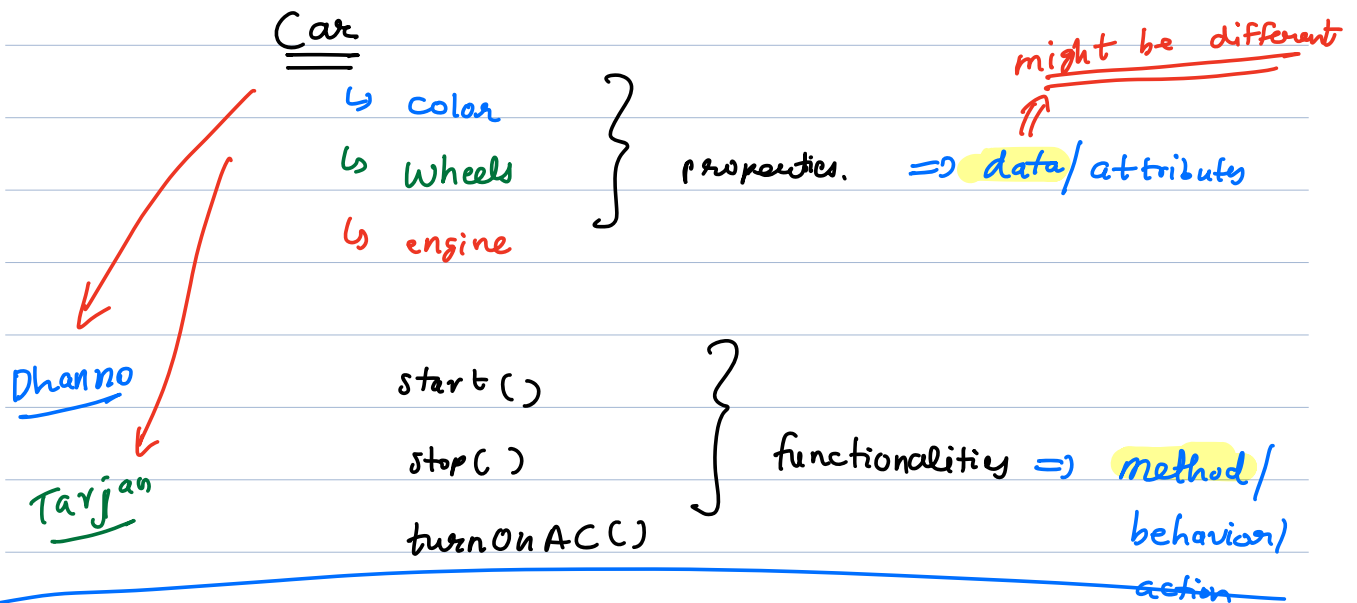 Car
might be different
↳ color
↳ Wheels
↳ engine
} properties. => data/attributes
Dhanno
Tarjan
start()
stop()
turnOnAC()
} functionalities => method/
behavior/
action